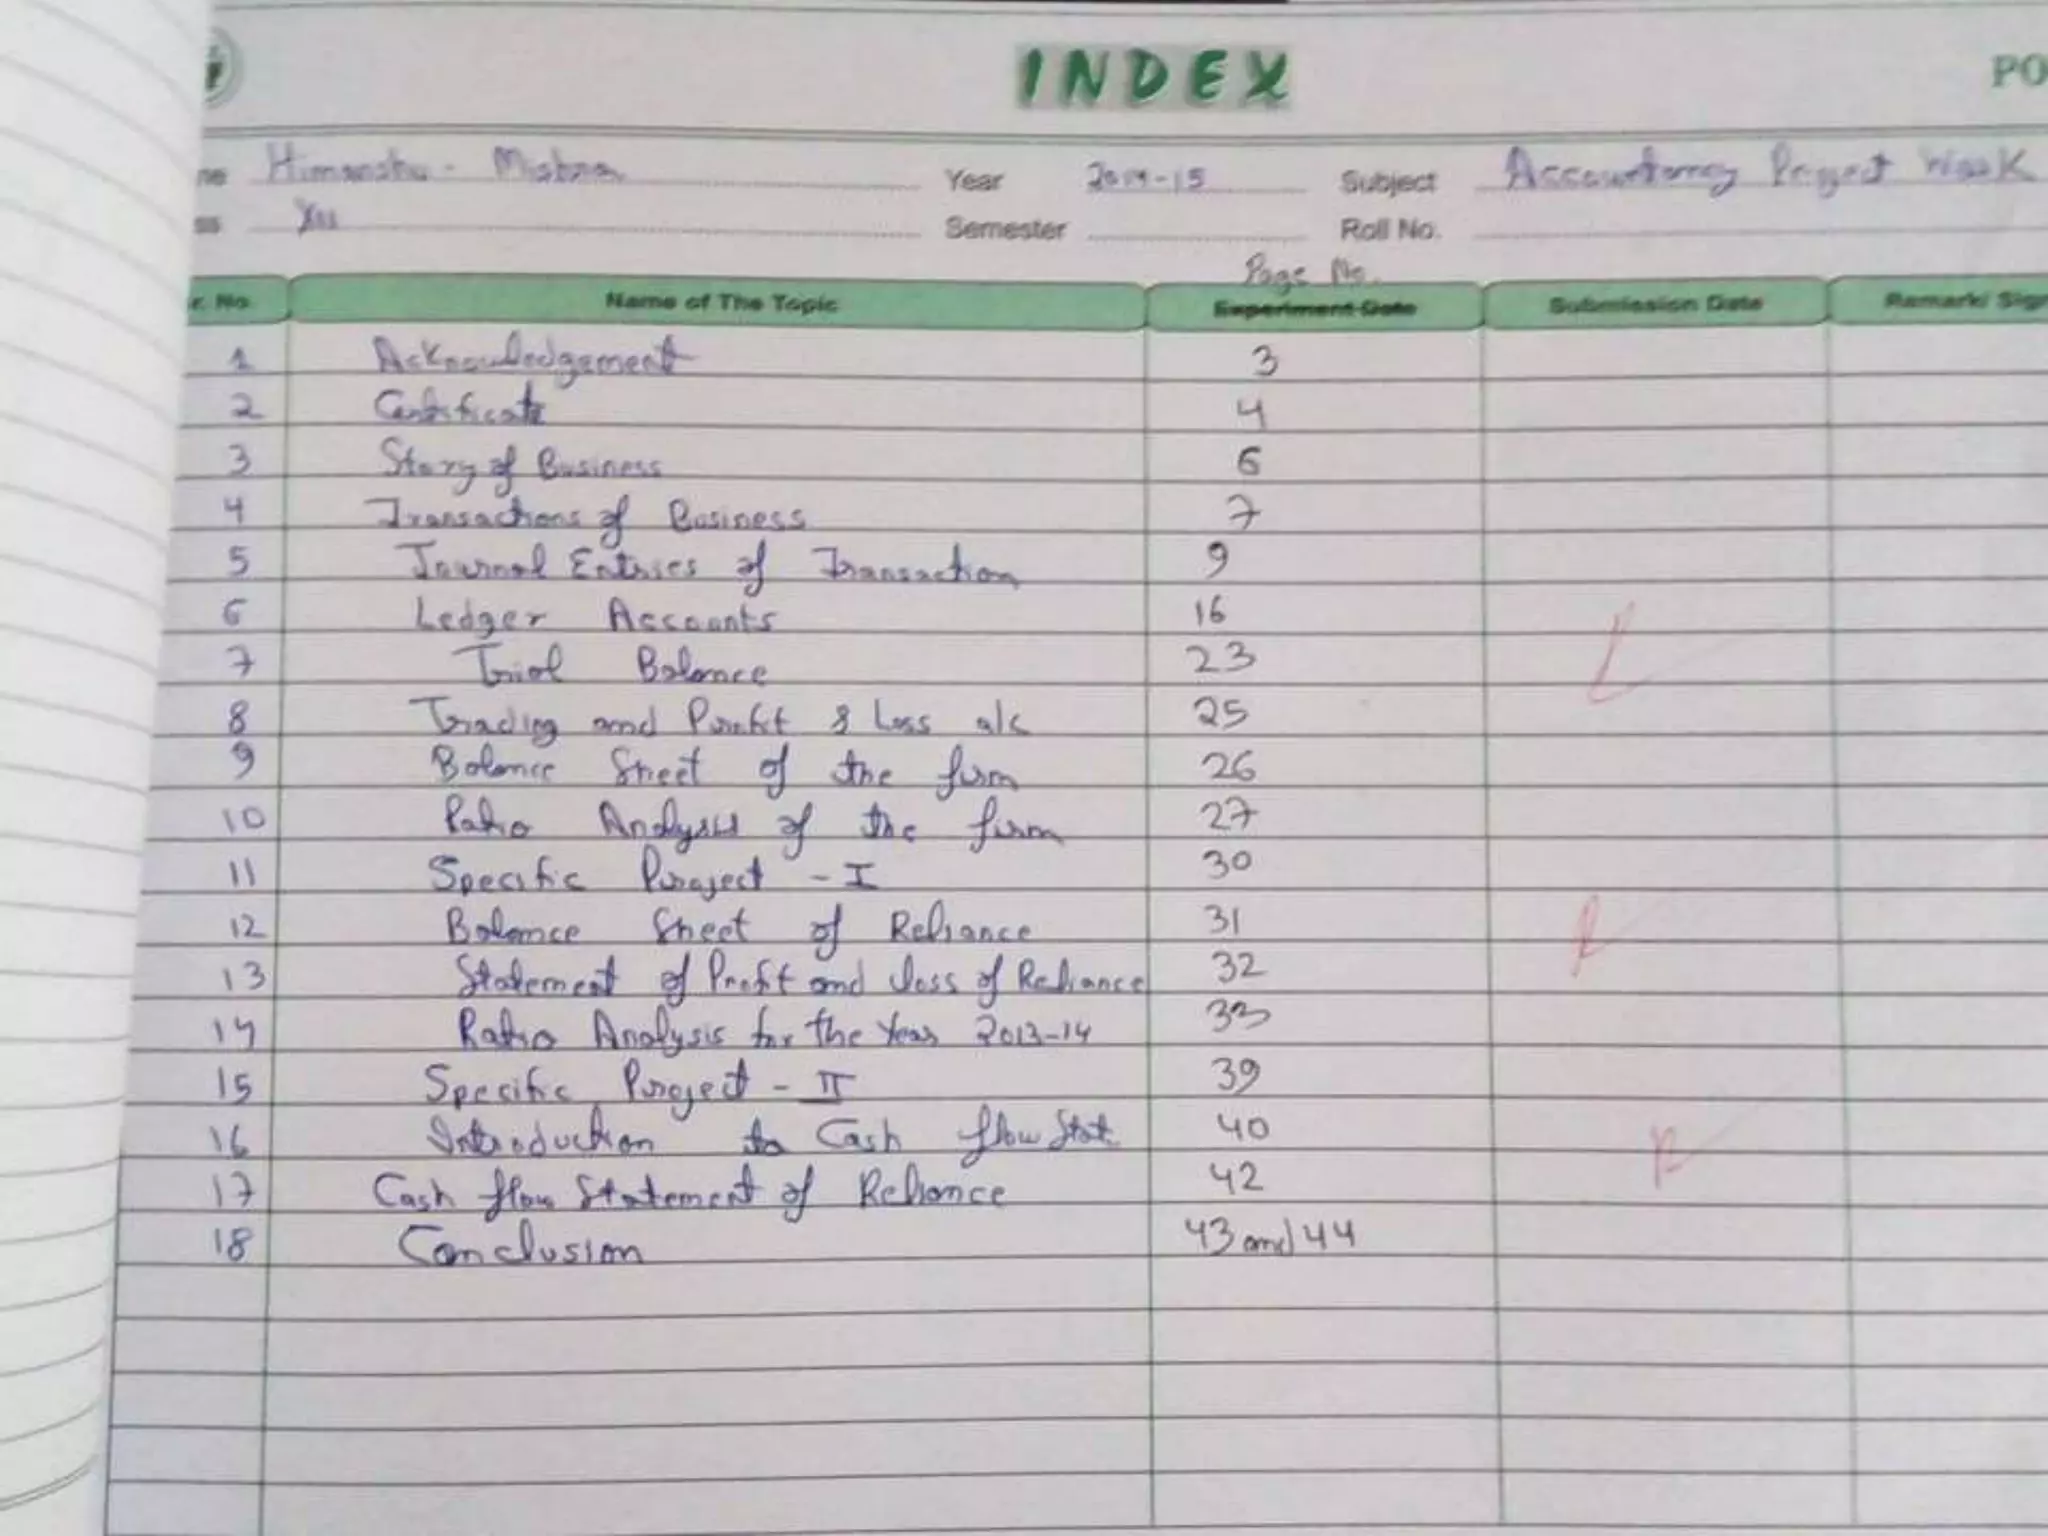 INDEX
PO
ne Himanshu - Mishra Year 2014-15 Subject Accountancy Project Work
ss XII Semester Roll No.
Page No.
r. No. Name of The Topic Experiment Date Submission Date Remark/ Sign
1 Acknowledgement 3
2 Certificate 4
3 Story of Business 6
4 Transactions of Business 7
5 Journal Entries of Transaction 9
6 Ledger Accounts 16
7 Trial Balance 23
8 Trading and Profit & Loss a/c 25
9 Balance Sheet of the firm 26
10 Ratio Analysis of the firm 27
11 Specific Project - I 30
12 Balance Sheet of Reliance 31
13 Statement of Profit and loss of Reliance 32
14 Ratio Analysis for the Year 2013-14 33
15 Specific Project - II 39
16 Introduction to Cash flow Stat. 40
17 Cash flow Statement of Reliance 42
18 Conclusion 43 and 44